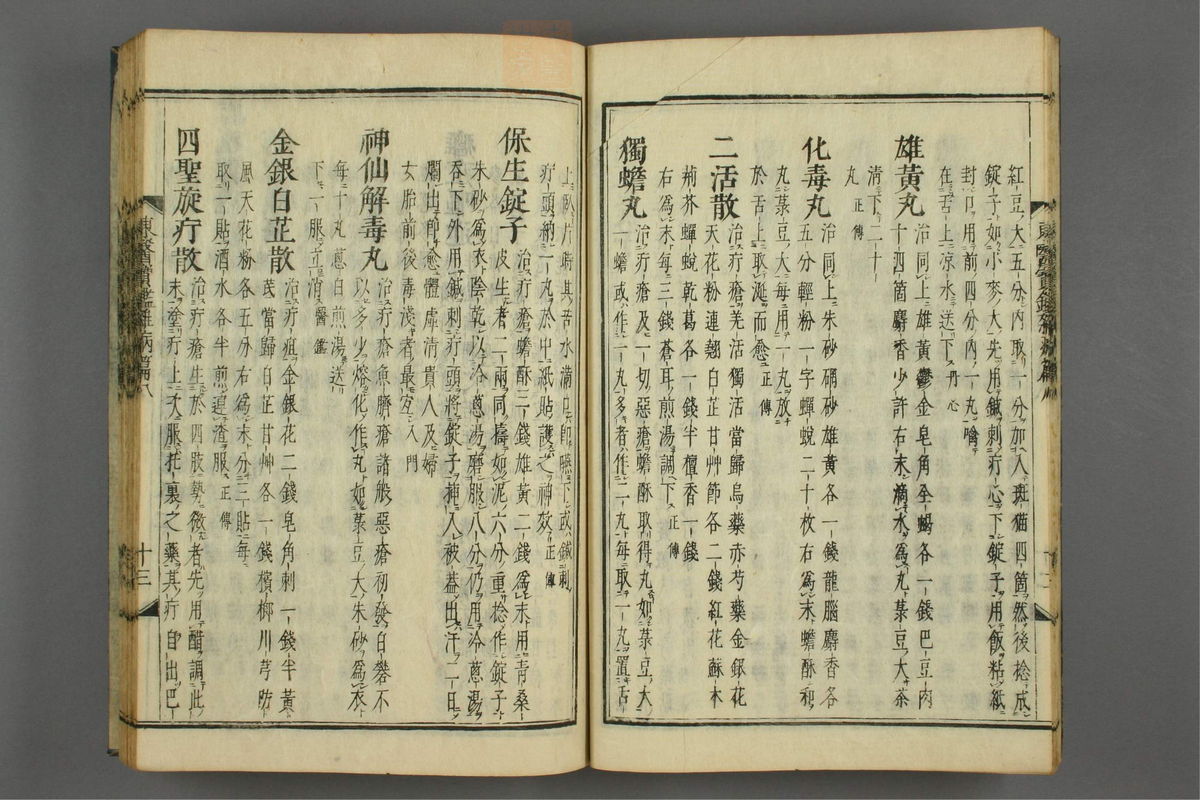 紅豆大五分內取一分加入斑猫四箇然後捻成
錠子如小麥大先用鍼刺疔心下錠子用飯粘紙
封卬用前四分內一丸噙
在舌上涼水送下丹心
雄黃丸治同上雄黃鬱金皂角全蝎各一錢巴豆肉
十四箇麝香少許右末滴水爲丸菉豆大茶
清下二十
丸正傳
化毒丸治同上朱砂硇砂雄黃各一錢龍腦麝香各
五分輕粉一字蟬蛻二十枚右爲末蟾酥和
丸菉豆大每用一丸放
於舌上取涎而愈正傳
二活散治疔瘡羌活獨活當歸烏藥赤芍藥金銀花
天花粉連翹白芷甘艸節各二錢紅花蘇木
荊芥蟬蛻乾葛各一錢半檀香一錢
右爲末每三錢蒼耳煎湯調下正傳
獨蟾丸治疔瘡及一切惡瘡蟾酥取得丸如菉豆大
一蟾或作一丸多者作二丸每取一丸置舌
上臥片時其苦水滿口卽嚥下或鍼刺
疔頭納一丸於中紙貼護之神效正傳
保生錠子治疔瘡蟾酥三錢雄黃二錢爲末用靑桑
皮生者二兩同擣如泥六分重捻作錠子
朱砂爲衣陰乾以冷蔥湯磨服八分仍用冷蔥湯
吞下外用鍼刺疔頭將錠子揷入被蓋出汗二日
爛出卽愈體虛清貴人及婦
女胎前後毒淺者最宜入門
神仙解毒丸治疔瘡魚臍瘡諸般惡瘡初發白礬不
以多少熔化作丸如菉豆大朱砂爲衣
每十丸蔥白煎湯送
下一服立消醫鑑
金銀白芷散治疔疽金銀花二錢皂角刺一錢半黃
芪當歸白芷甘艸各一錢檳榔川芎防
風天花粉各五分右爲末分二貼每
取一貼酒水各半煎連渣服正傳
四聖旋疔散治疔瘡生於四肢勢微者先用醋調此
末塗疔上次服托裏之藥其疔自出巴
東醫寶鑑雜病篇八
十三